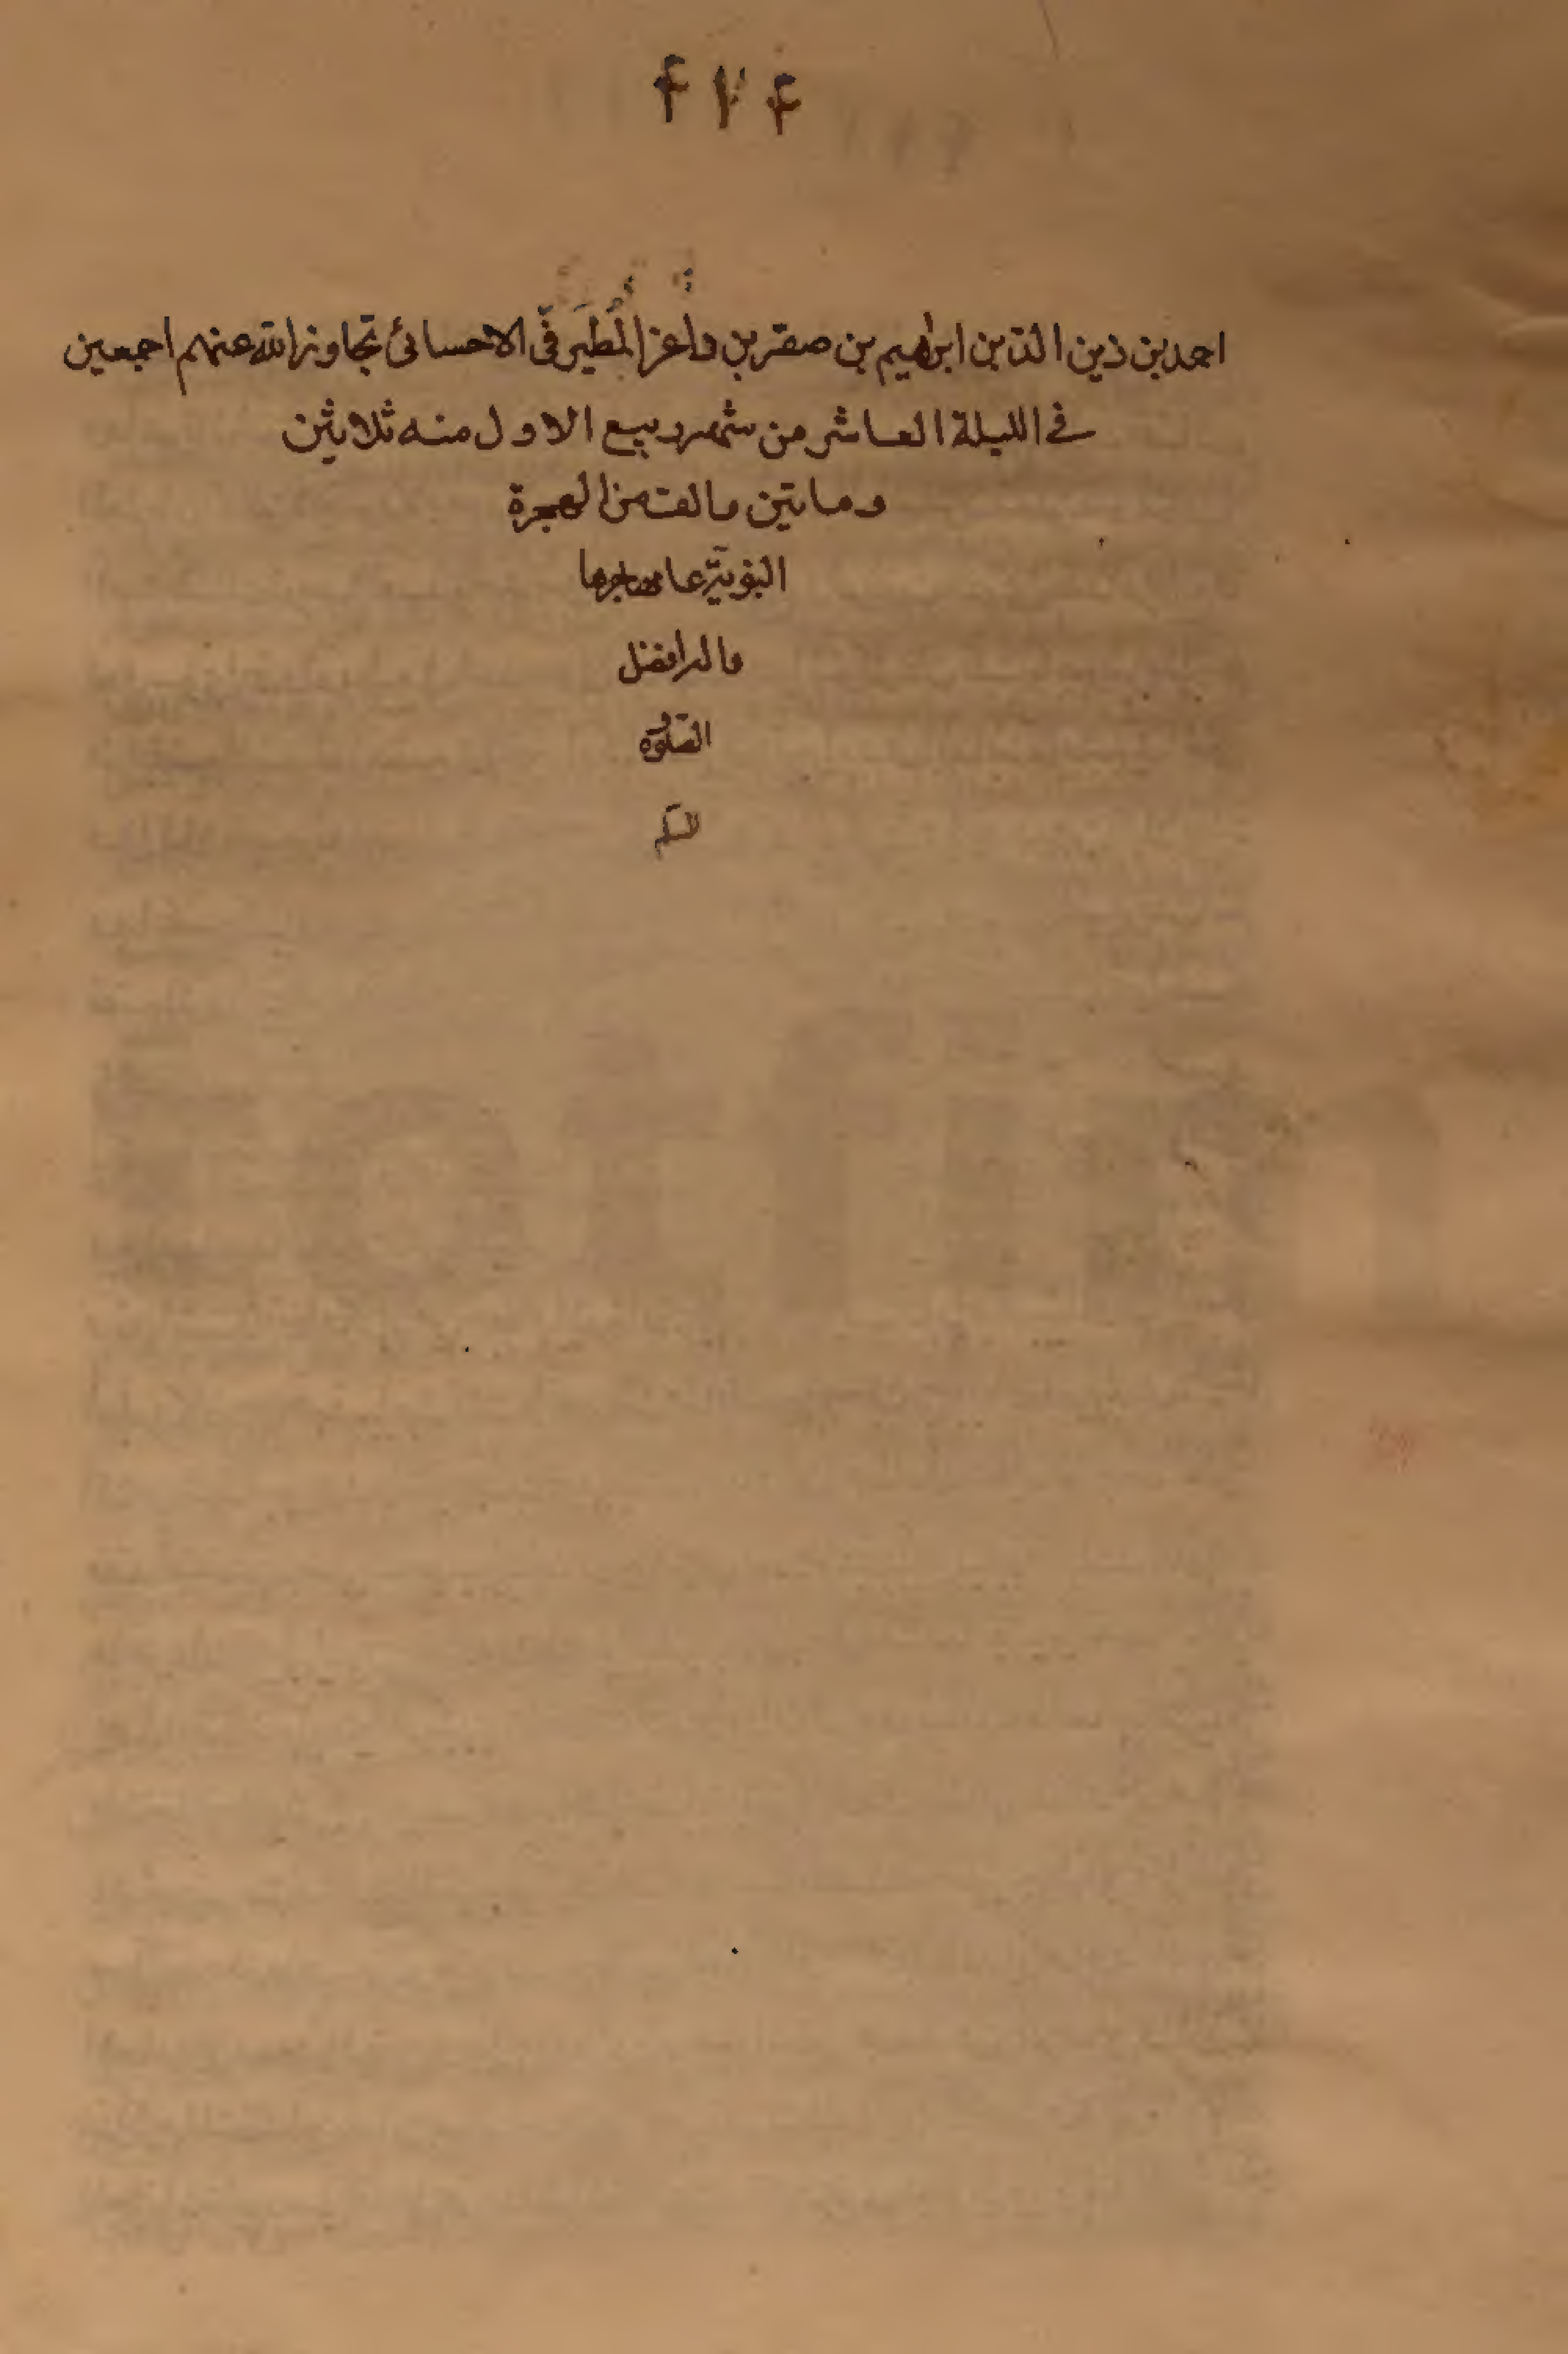 ۴۱۴
احمد بن زين الدّين بن ابرٰهيم بن صقر بن داغر المُطَيرَفّي الاحسائى تجاوز الله عنهم اجمعين
في الليلة العاشر من شهر ربيع الاول منه ثلاثين
و ماتين و الف من الهجرة
النبويّة على مهاجرها
و اله افضل
الصّلوة
السّلم